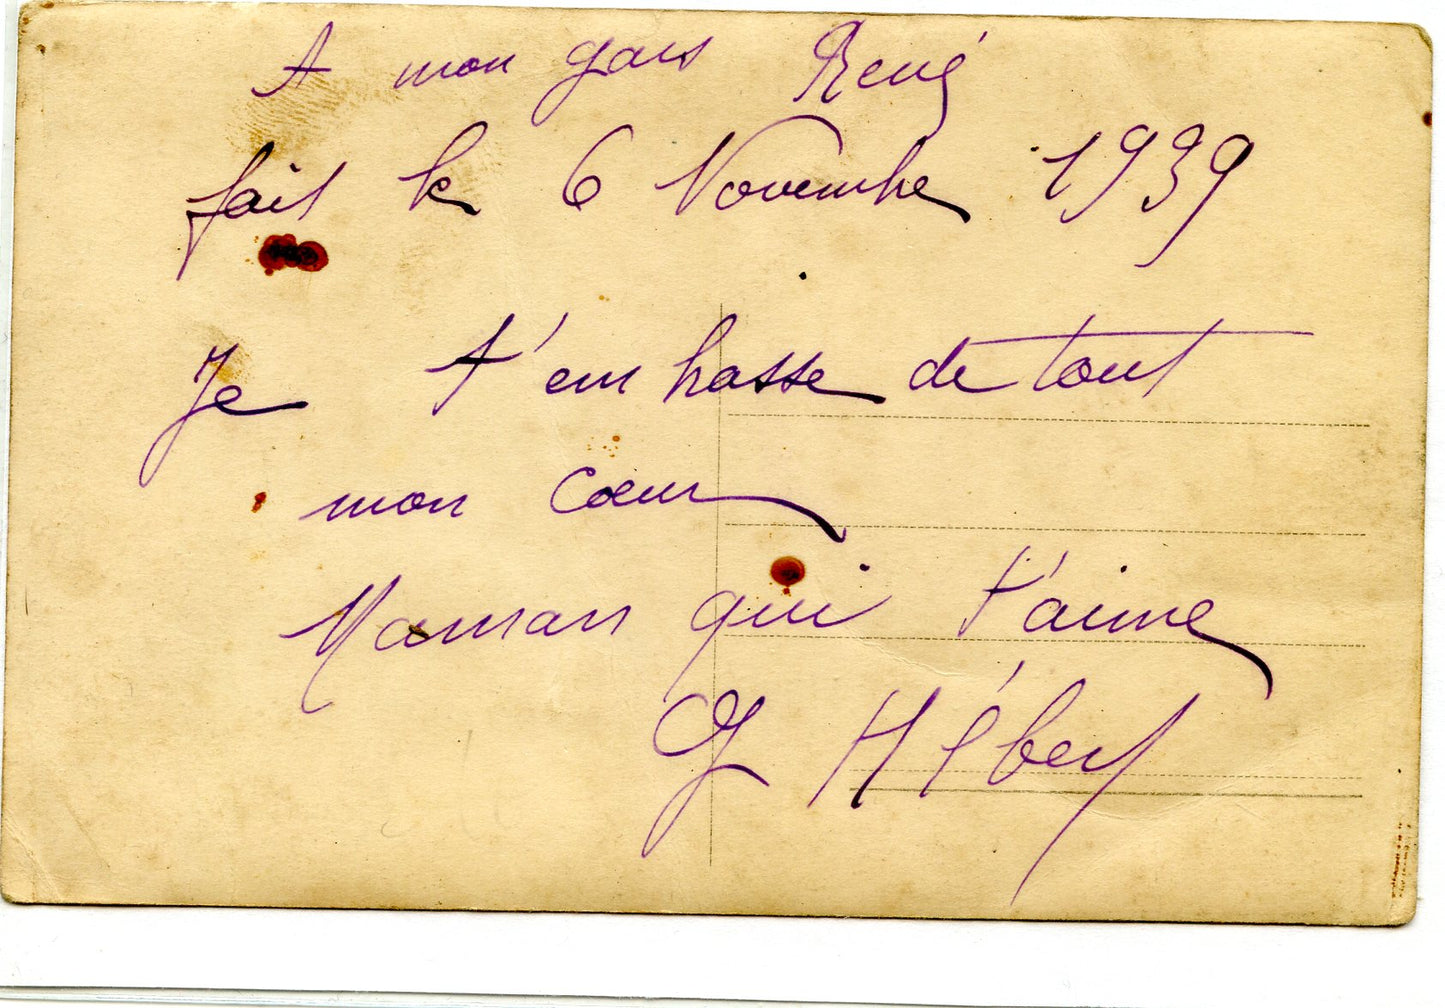 A mon gars René
fait le 6 Novembre 1939
Je t'embrasse de tout
mon cœur
Maman qui t'aime
G Hébert